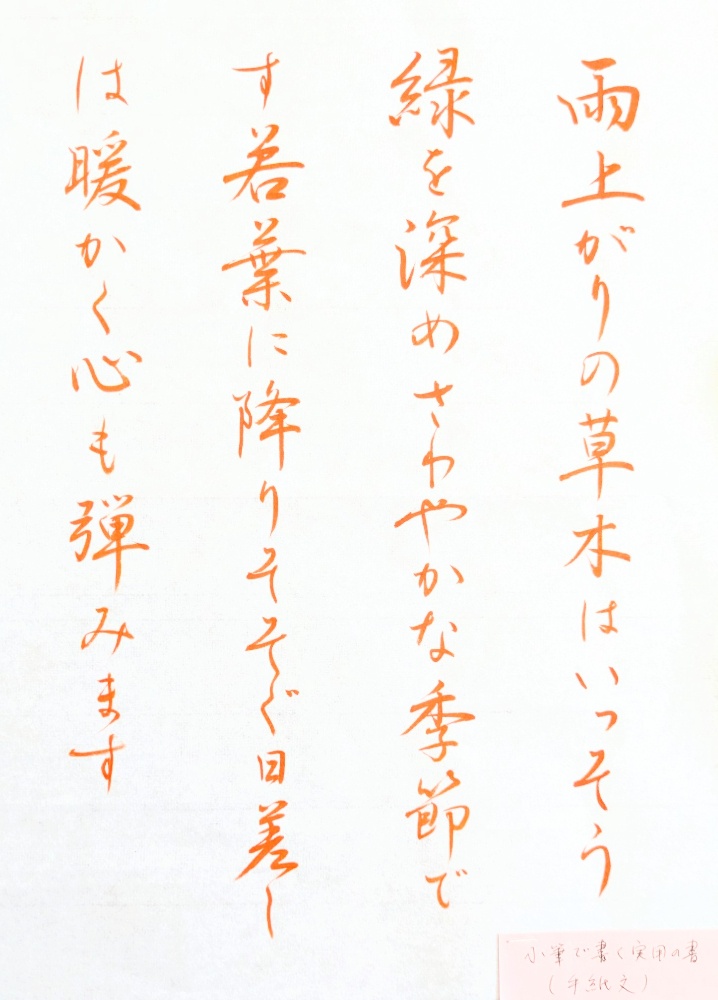 雨上がりの草木はいっそう
緑を深めさわやかな季節で
す若葉に降りそそぐ日差し
は暖かく心も弾みます
小筆で書く実用の書
(手紙文)